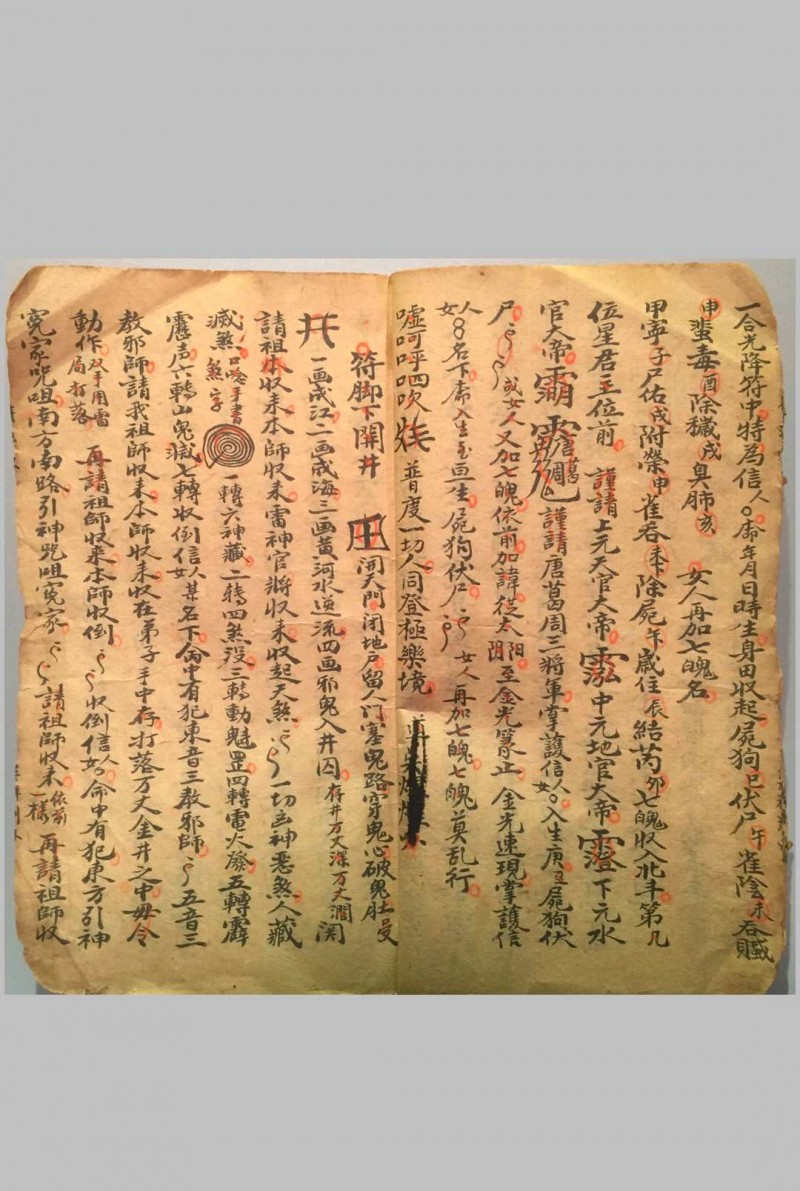 一合光降符中特為信人〇命年月日時生身田收起屍狗巳伏尸午雀陰未吞賊
申蜚毒酉除穢戌臭肺亥 女人再加七魄名
甲寧子尸佑戌附榮申雀吞未除屍午歲住辰結芮卯七魄收入北斗第几
位星君主位前 謹請上元天官大帝 中元地官大帝 下元水
官大帝 謹請唐葛周三將軍掌護信人女〇入生庚 屍狗伏
尸 或女人又加七魄依前加諱從太陽陰至金光篆止 金光速現掌護信
人女〇〇名下命入生 生屍狗伏尸 女人再加七魄七魄莫亂行
噓呵呼呬吹 普度一切人同登極樂境
符脚下開井 開天門閉地戶留人門塞鬼路穿鬼心破鬼肚
井 一画成江二画成海三画黃河水逆流四画邪鬼入井囚 存井万丈深万丈濶
請祖本收耒本師收耒雷神官將收耒收起天煞 一切 神惡煞人藏
滅煞 口唸手書煞字 一轉六神藏二轉四煞没三轉動魁罡四轉電火發五轉霹
靂声六轉山鬼滅七轉收倒信人女某名下命中有犯東音三教邪師 五音三
教邪師請我祖師收耒本師收耒收在弟子手中存打落万丈金井之中毋令
動作 双手用雷局打落 再請祖師收耒本師收倒 收倒信人女〇命中有犯東方引神
冤家咒咀南方南路引神咒咀冤家 請祖師收耒依前一樣 再請祖師收